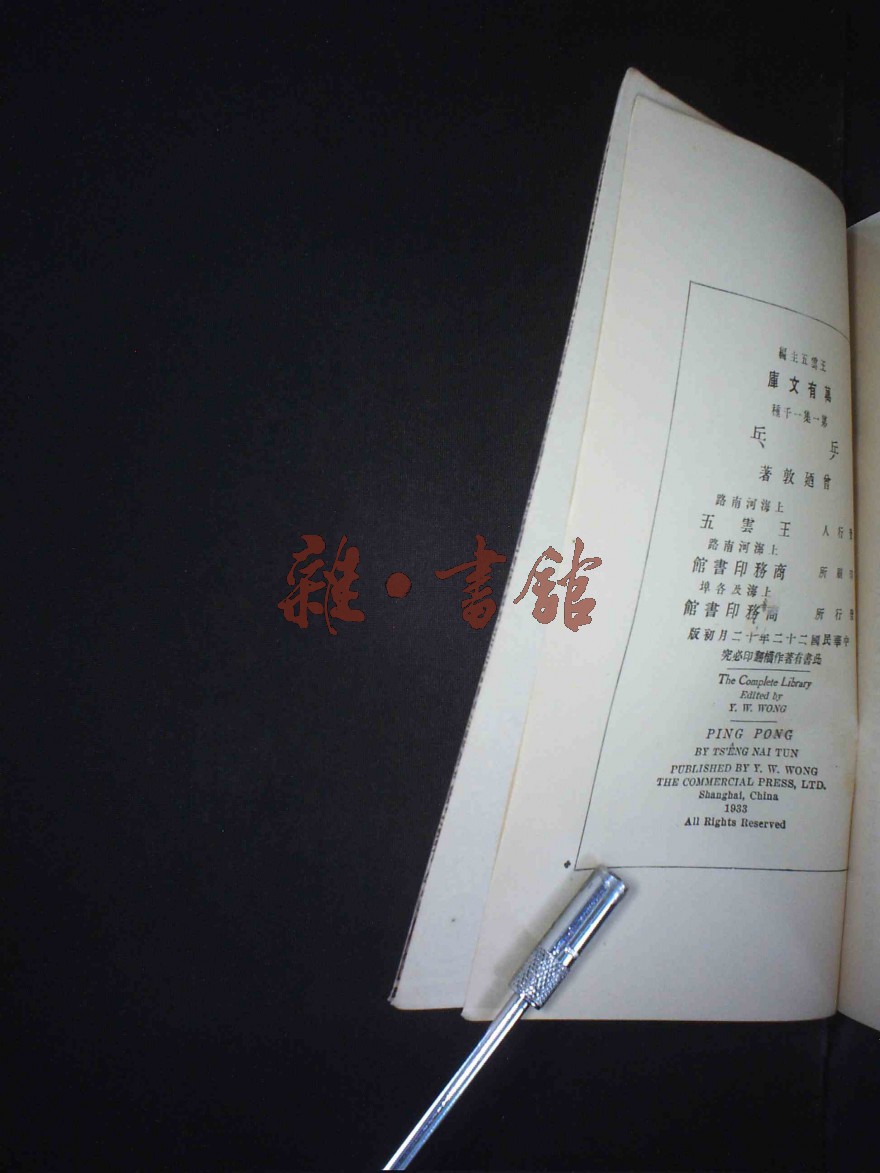 王雲五主編
萬有文庫
第一集一千種
乒乓
曾廼敦著
上海河南路
發行人 王雲五
上海河南路
印刷所 商務印書館
上海及各埠
發行所 商務印書館
中華民國二十二年十二月初版
此書有著作權翻印必究
The Complete Library
Edited by
Y. W. WONG
PING PONG
BY TSʻÊNG NAI TUN
PUBLISHED BY Y. W. WONG
THE COMMERCIAL PRESS, LTD.
Shanghai, China
1933
All Rights Reserved
雜·書館